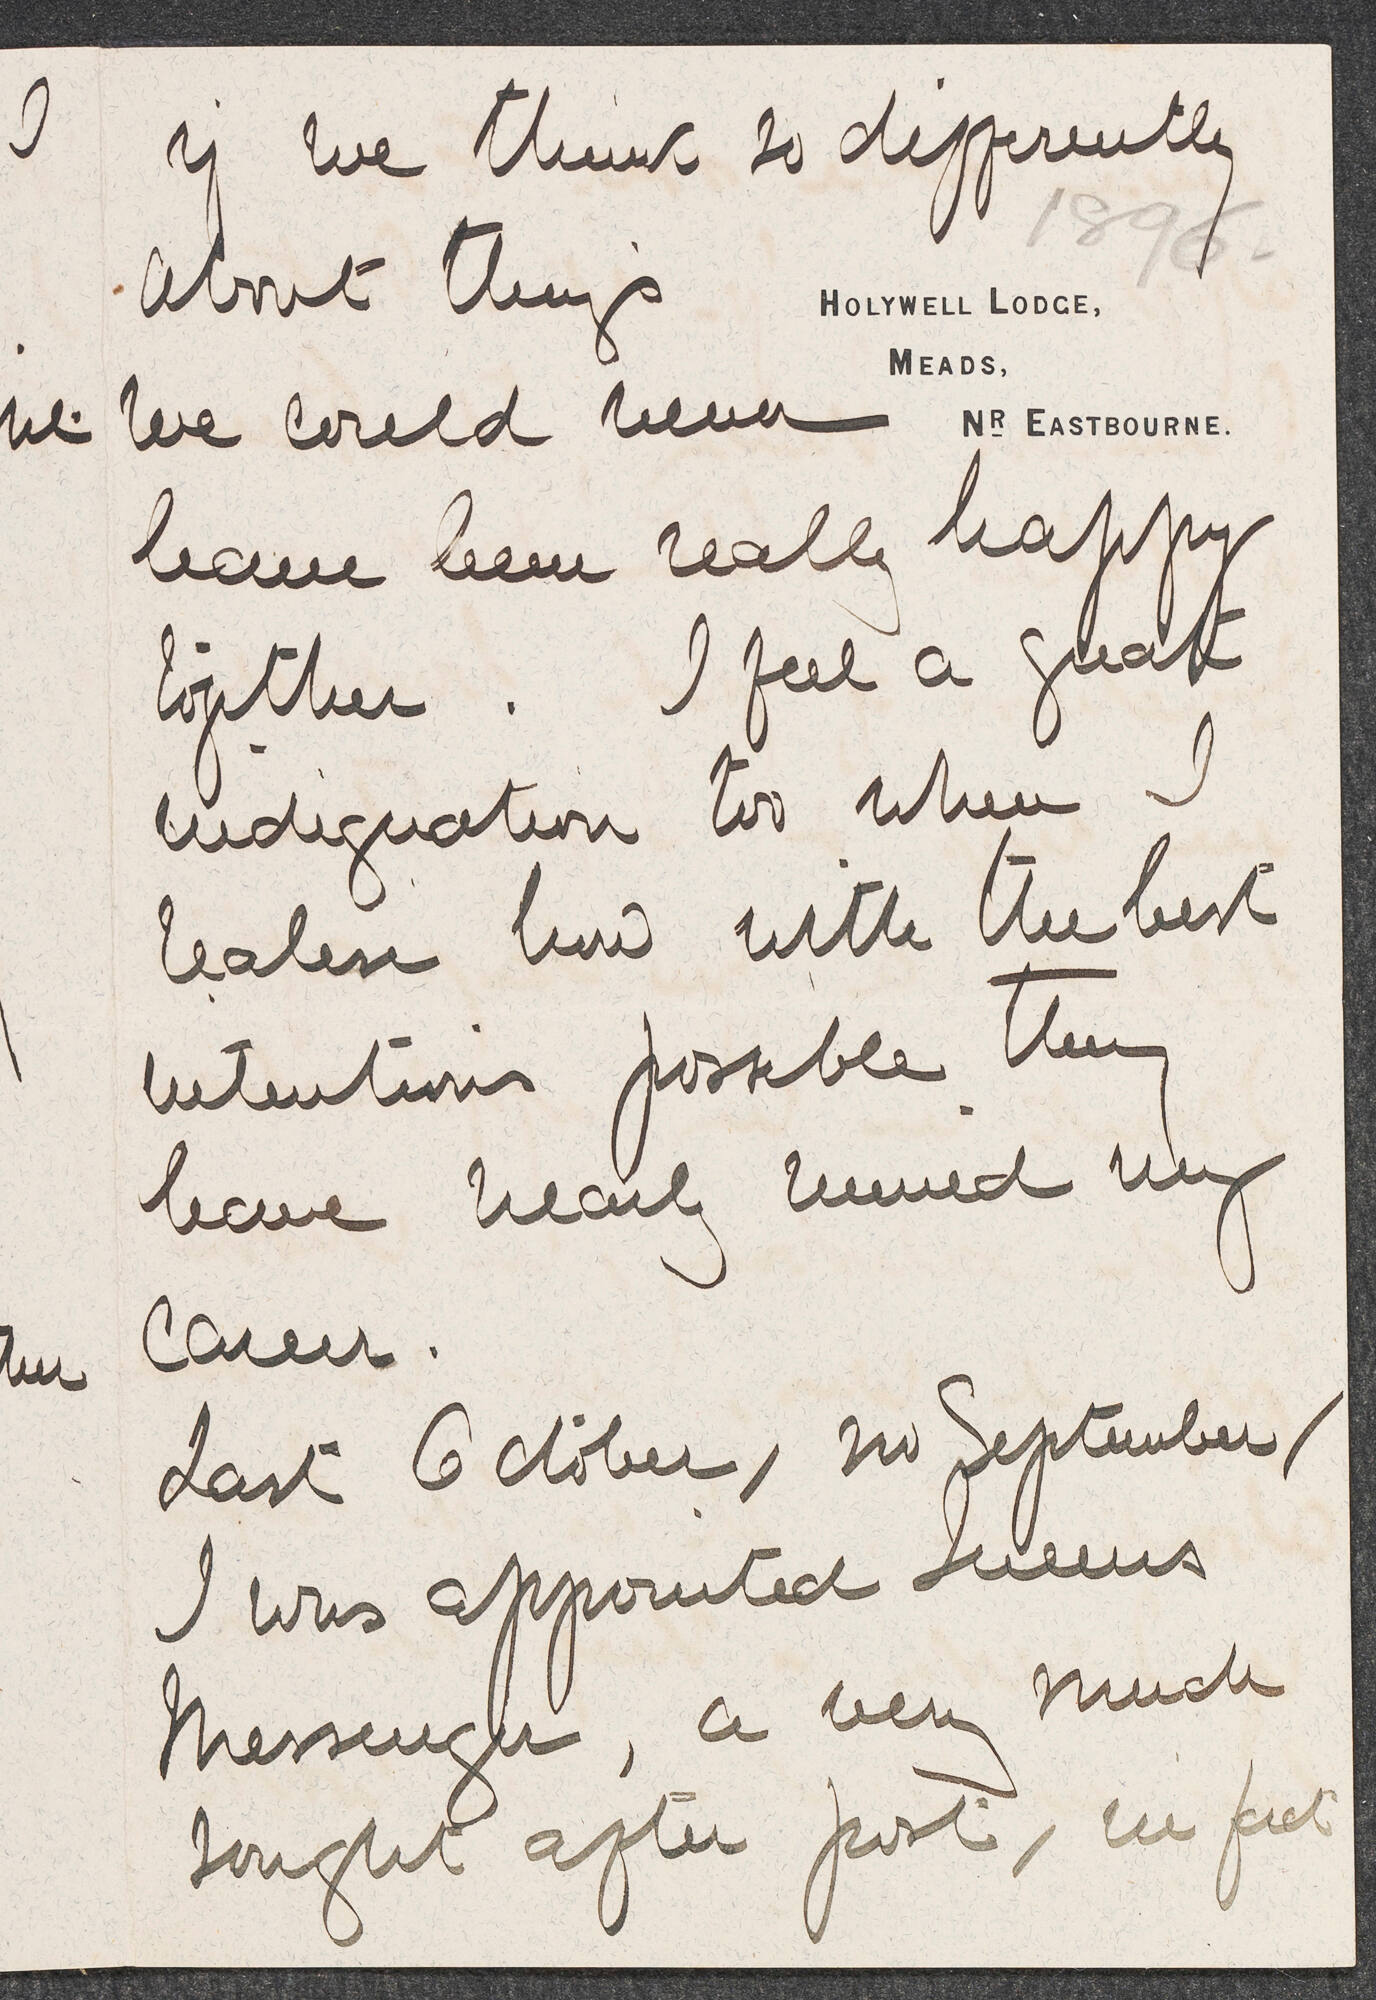 1896.
HOLYWELL LODGE,
MEADS,
NR EASTBOURNE.
if we think so differently
about things
we could never
have been really happy
together. I feel a great
indignation too when I
realise how with the best
intentions possible they
have nearly ruined my
career.
Last October, no September,
I was appointed Queens
Messenger, a very much
sought after post, in fact
I